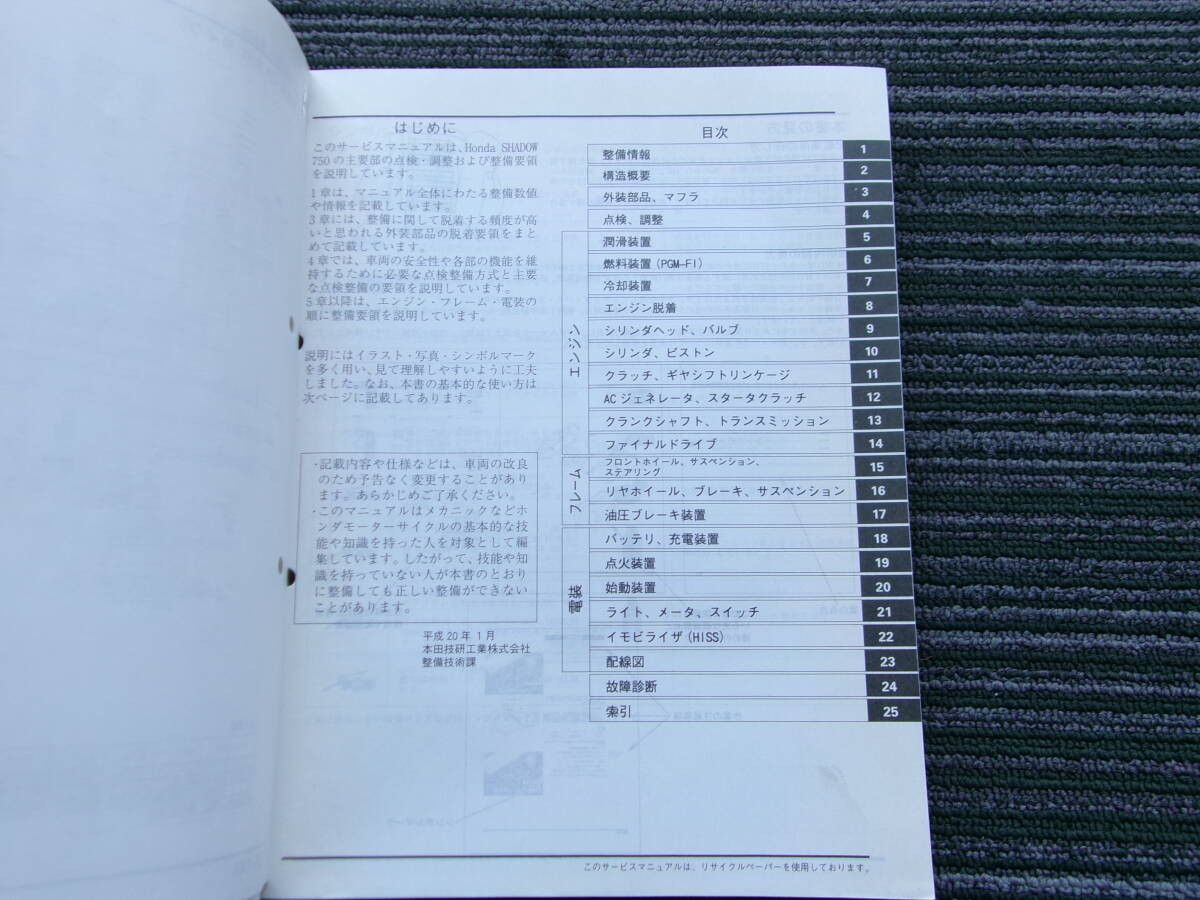 はじめに
このサービスマニュアルは、Honda SHADOW
750 の主要部の点検・調整および整備要領
を説明しています。
1章は、マニュアル全体にわたる整備数値
や情報を記載しています。
3章には、整備に関して脱着する頻度が高
いと思われる外装部品の脱着要領をまと
めて記載しています。
4章では、車両の安全性や各部の機能を維
持するために必要な点検整備方式と主要
な点検整備の要領を説明しています。
5章以降は、エンジン・フレーム・電装の
順に整備要領を説明しています。
説明にはイラスト・写真・シンボルマーク
を多く用い、見て理解しやすいように工夫
しました。なお、本書の基本的な使い方は
次ページに記載してあります。
・記載内容や仕様などは、車両の改良
のため予告なく変更することがあり
ます。あらかじめご了承ください。
・このマニュアルはメカニックなどホ
ンダモーターサイクルの基本的な技
能や知識を持った人を対象として編
集しています。したがって、技能や知
識を持っていない人が本書のとおり
に整備しても正しい整備ができない
ことがあります。
平成20年1月
本田技研工業株式会社
整備技術課
目次
整備情報 1
構造概要 2
外装部品、マフラ 3
点検、調整 4
エンジン
潤滑装置 5
燃料装置(PGM-FI) 6
冷却装置 7
エンジン脱着 8
シリンダヘッド、バルブ 9
シリンダ、ピストン 10
クラッチ、ギヤシフトリンケージ 11
ACジェネレータ、スタータクラッチ 12
クランクシャフト、トランスミッション 13
ファイナルドライブ 14
フレーム
フロントホイール、サスペンション、
ステアリング 15
リヤホイール、ブレーキ、サスペンション 16
油圧ブレーキ装置 17
電装
バッテリ、充電装置 18
点火装置 19
始動装置 20
ライト、メータ、スイッチ 21
イモビライザ(HISS) 22
配線図 23
故障診断 24
索引 25
このサービスマニュアルは、リサイクルペーパーを使用しております。